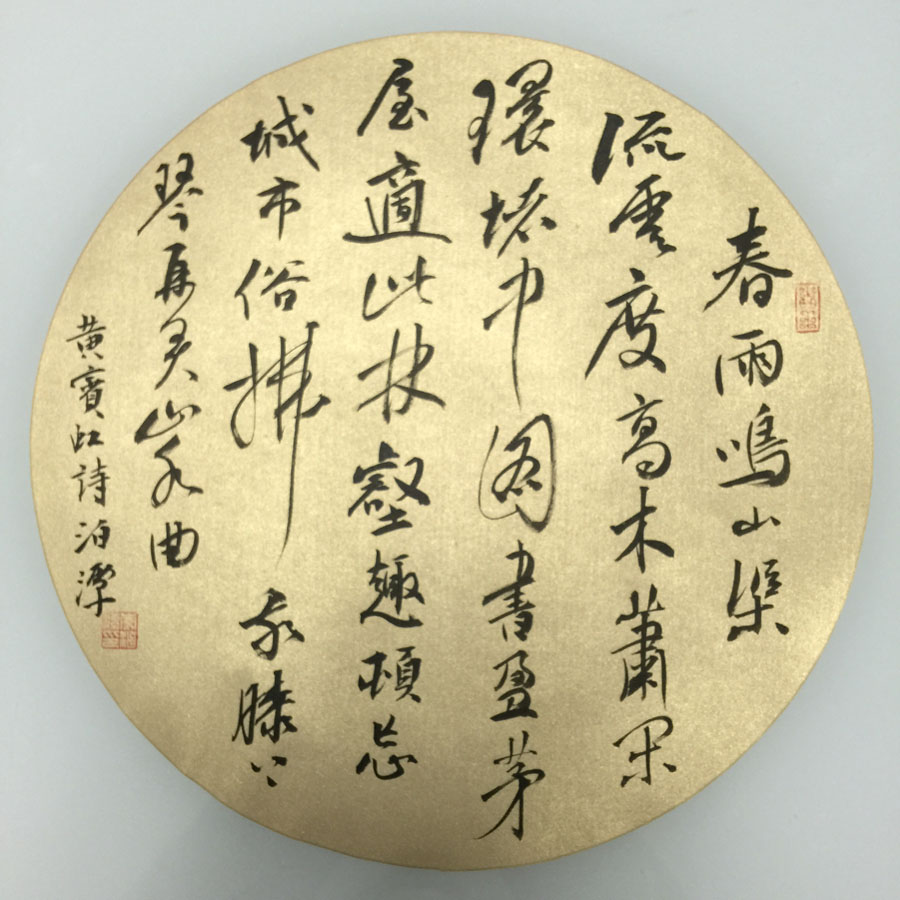 春雨鳴山渠
流雲度高木蕭閑
環堵中圖書盈茅
屋適此林壑趣頓忘
城市俗拂我膝上
琴再山水曲
黄賓虹詩泊